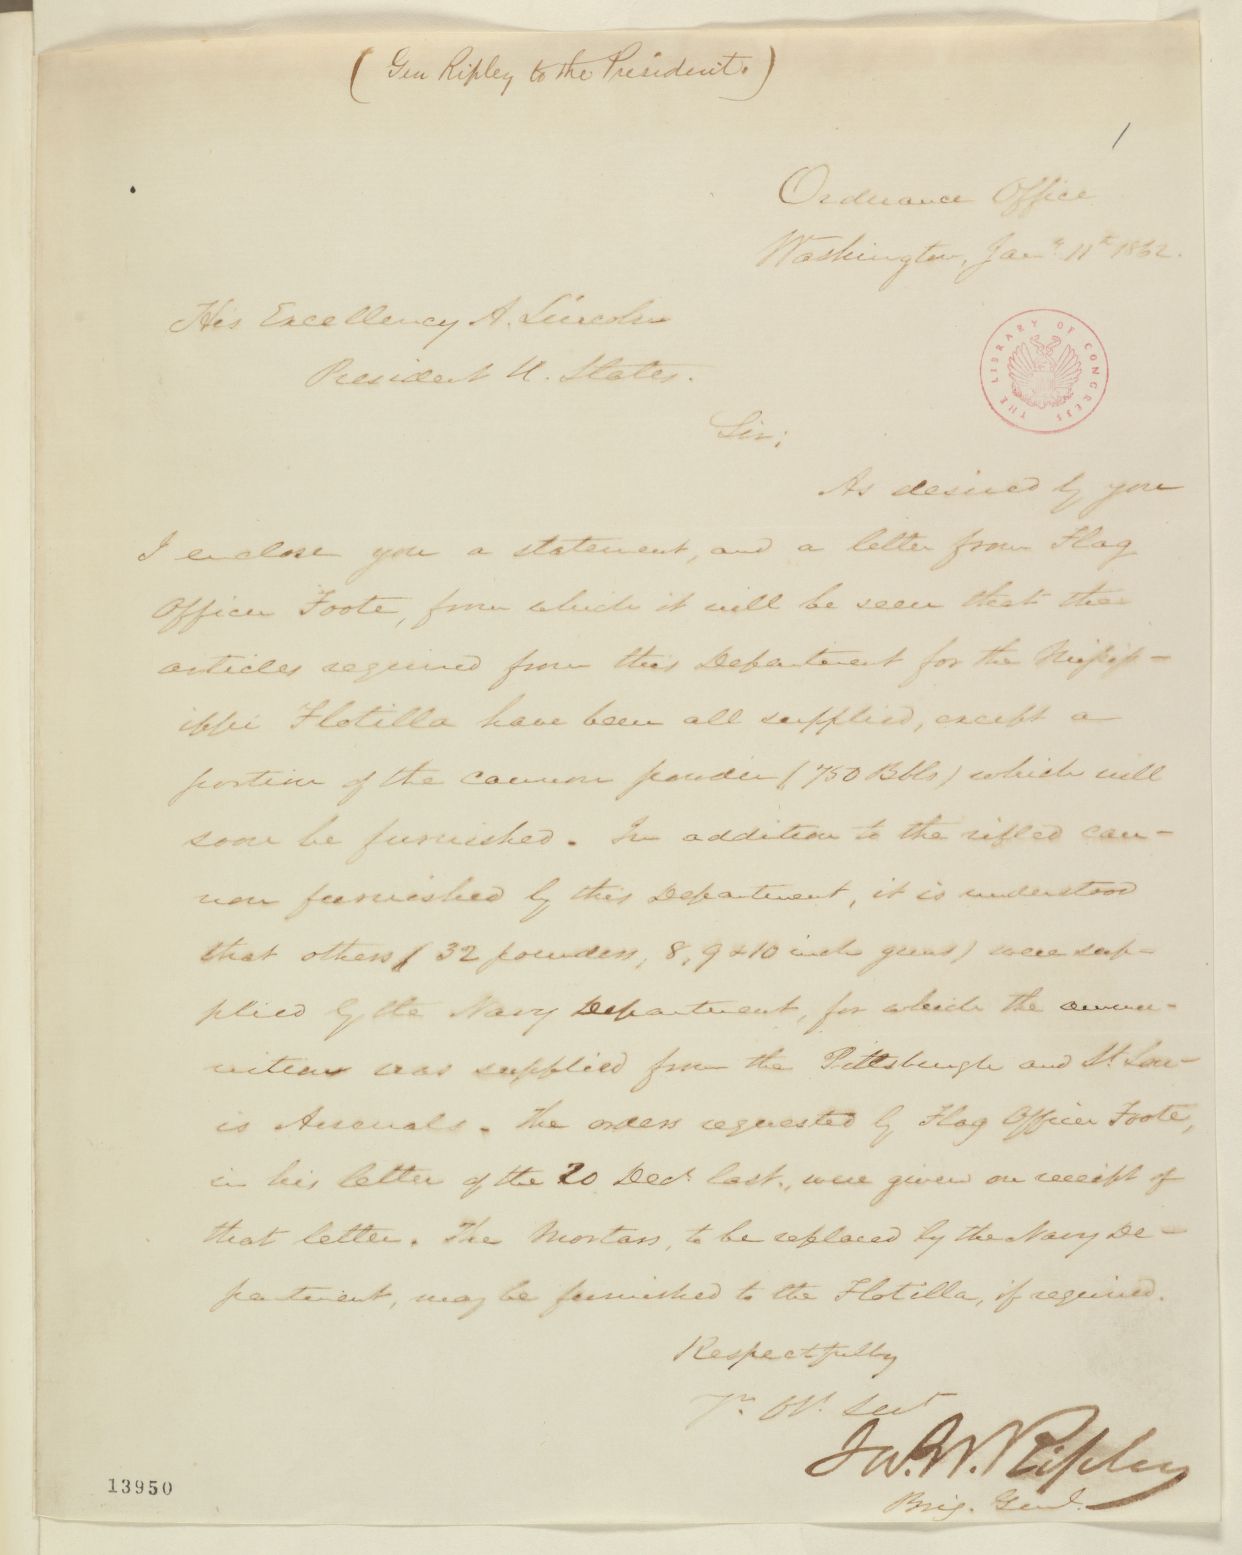 (Gen Ripley to the President.)
1
Ordnance Office
Washington, Jany. 11th 1862.
His Excellency A. Lincoln
President U. States.
THE LIBRARY OF CONGRESS
Sir;
As desired by you
I enclose you a statement, and a letter from Flag
Officer Foote, from which it will be seen that the
articles required from this Department for the Missis-
ippi Flotilla have been all supplied, except a
portion of the cannon powder (750 Bbls) which will
soon be furnished. In addition to the rifled can-
non furnished by this Department, it is understood
that others (32 pounders, 8, 9 & 10 inch guns) were sup-
plied by the Navy Department, for which the ammu-
nition was supplied from the Pittsburgh and St. Lou-
is Arsenals. The orders requested by Flag Officer Foote,
in his letter of the 20 Decr. last, were given on receipt of
that letter. The Mortars, to be replaced by the Navy De-
partment, may be furnished to the Flotilla, if required.
Respectfully
Yr. Obt. Sevt
Jas. W. Ripley
Brig. Genl.
13950